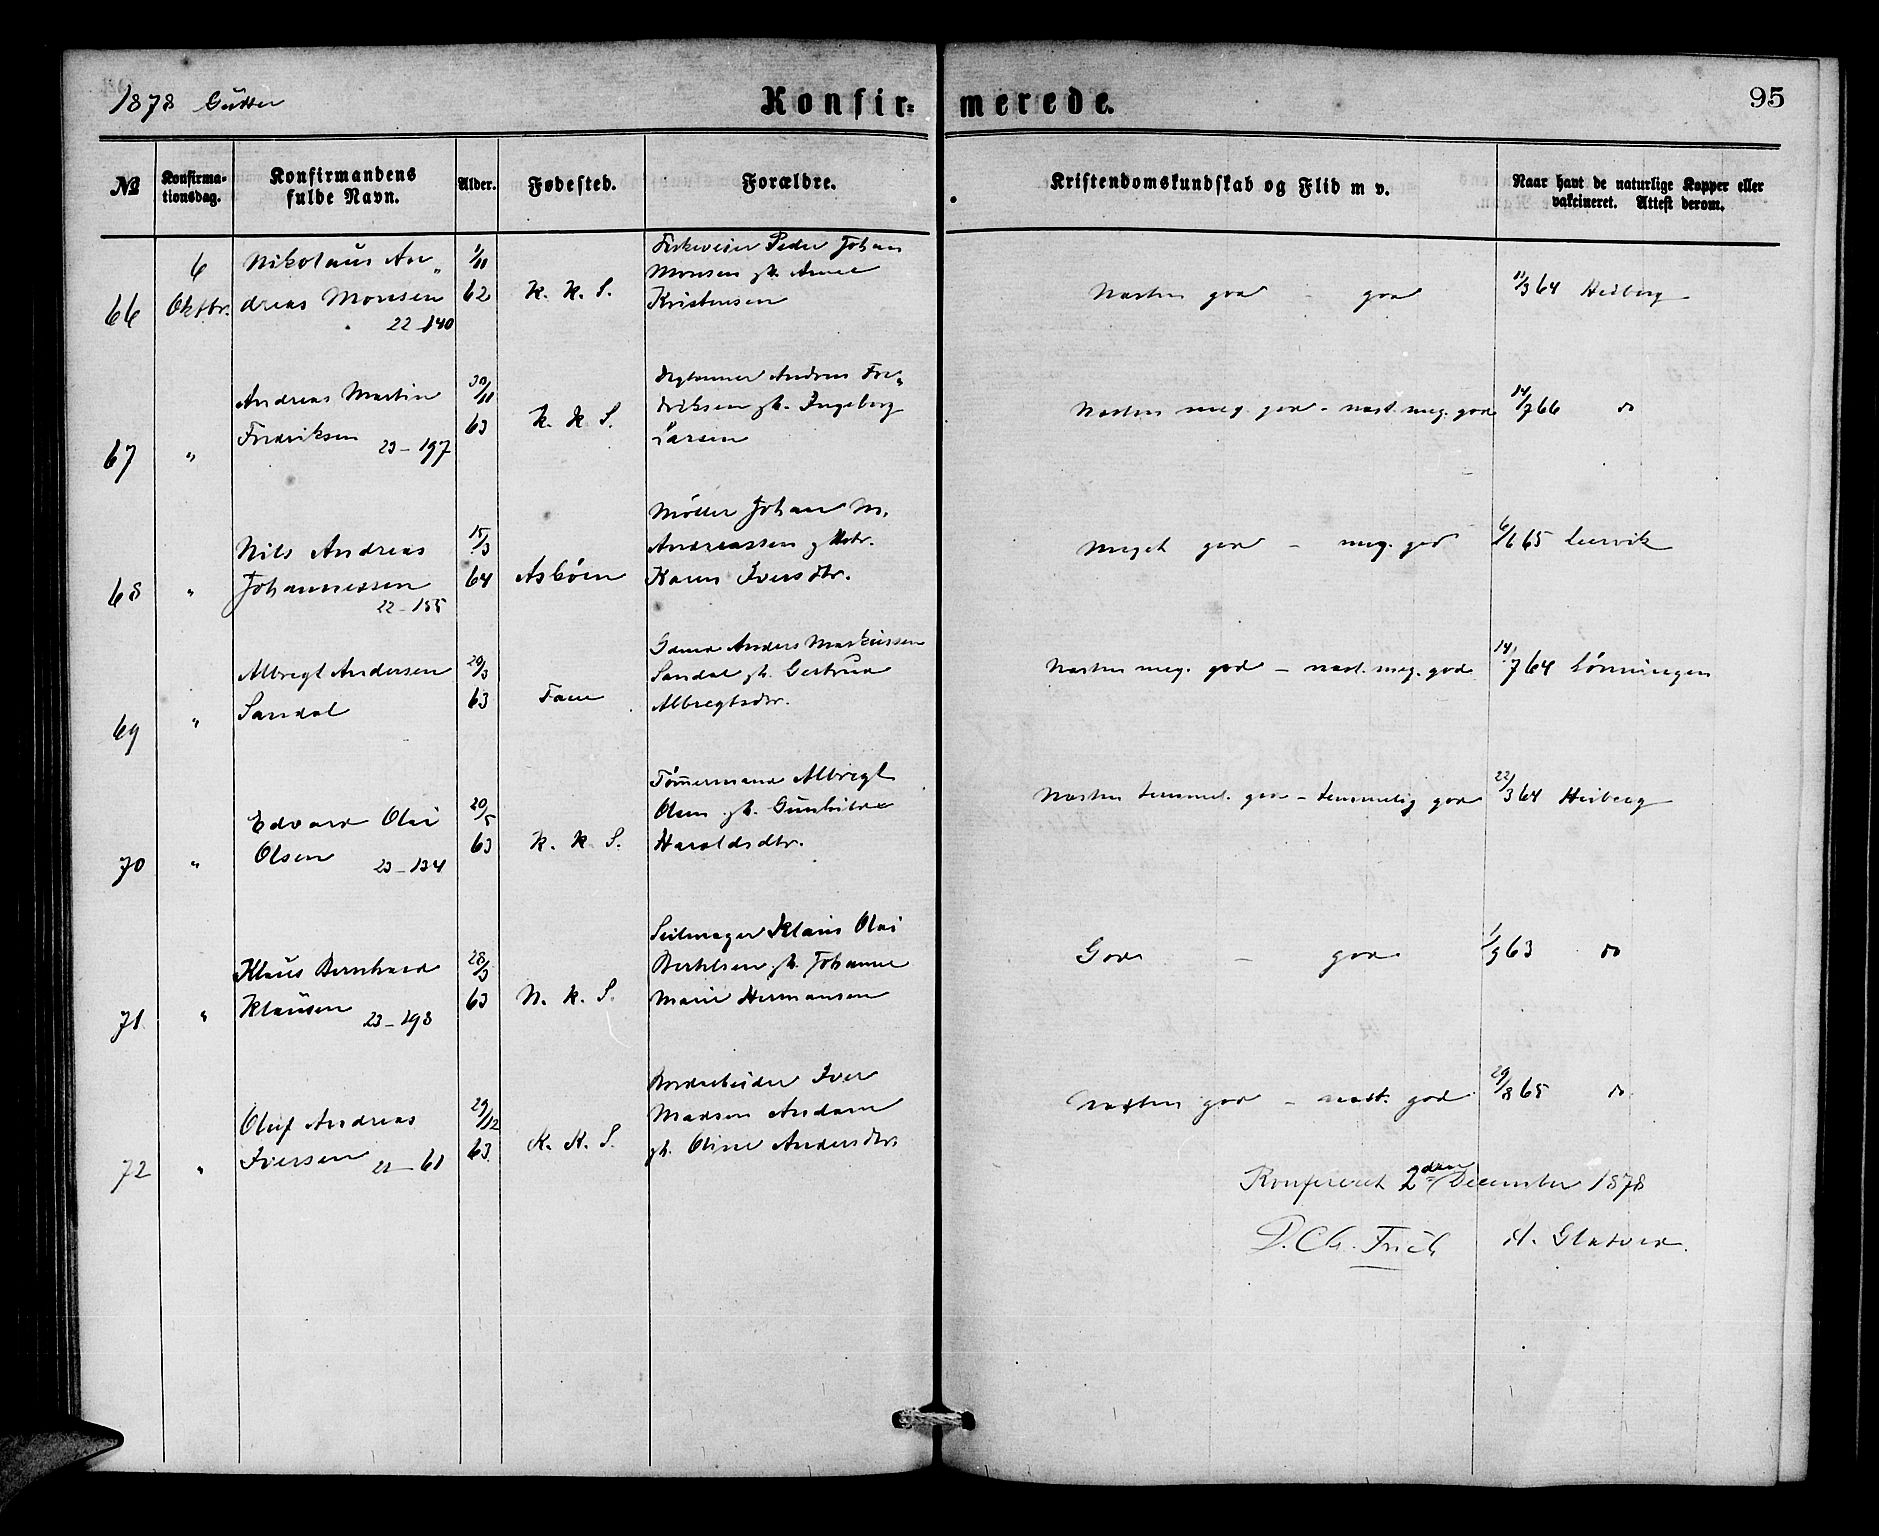 1878 Gutter
Konfir=merede.
95
№
Konfirma-
tionsdag.
Konfirmandens
fulde Navn.
Alder.
Fødested.
Forældre.
Kristendomskundskab og Flid m v.
Naar havt de naturlige Kopper eller
vakcineret. Attest derom.
66
6
Oktbr.
Nikolaus An„
dreas Monsen
22–140
1/11
62
K. K. S.
Peder Johan
Monsen gh. Anne
Kristensen
Næsten god – god
11/3 64 Heiberg
67
"
Andreas Martin
Fredriksen 23–197
30/11
63
K. K. S.
Andreas Fre„
driksen gh. Ingeborg
Larsen
Næsten meg. god – næst. meg. god
14/7 66 do
68
"
Nils Andreas
Johannessen
22–155
15/3
64
Asköen
Møller Johan M.
Andreassen g Mstr.
Karen Iversdtr.
Meget god – meg. god
6/6 65 Leervik
69
"
Albregt Andersen
Sandal
20/3
63
Fane
Gdmd Anders Markussen
Sandal gh. Gertrud
Albregtsdtr.
Næsten meg. god – næst. meg. god
14/7 64 Lönningen
70
"
Edvard Olai
Olsen 23–134
20/5
63
K. K. S.
Tömmermand Albregt
Olsen gh. Gunhilde
Haroldsdtr.
Næsten temmel. god – temmelig god
22/3 64 Heiberg
71
"
Klaus Bernhard
Klausen 23–198
28/3
63
N. K. S.
Seilmager Klaus Olai
Bertelsen gh. Johanne
Marie Hermansen
God – god
1/9 63 do
72
"
Oluf Andreas
Iversen 22–61
29/12
63
K. K. S.
Jordarbeider Iver
Madsen Andam
gh. Oline Andersdtr
Næsten god – næst. god
29/8 65 do
Konfereret 2den December 1878
D. Ch. Frich A. Glatved.